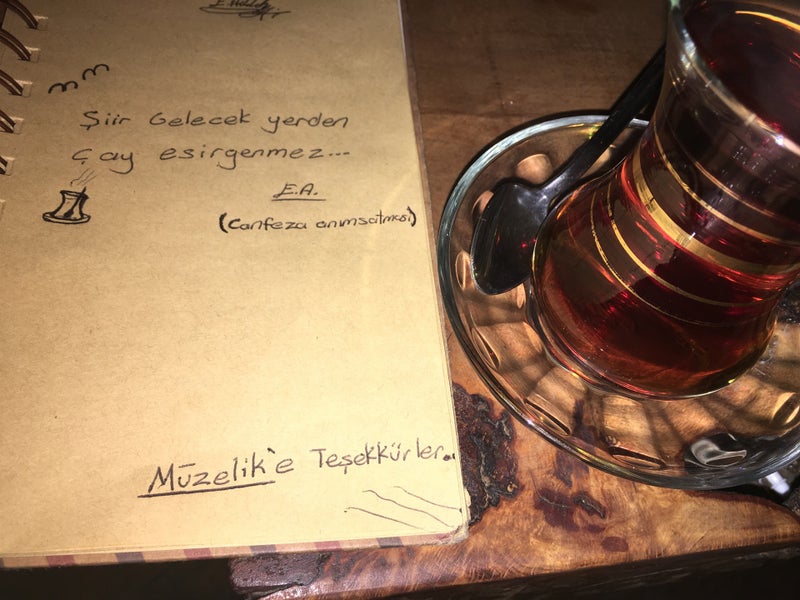 Şiir Gelecek yerden
Çay esirgenmez...
E.A.
(Canfeza anımsatması)
Müzelik'e Teşekkürler.